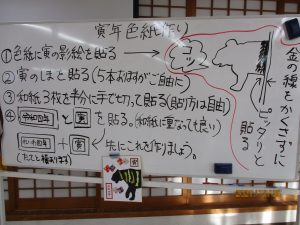 寅年色紙作り
①色紙に寅の影絵を貼る
②寅のしまを貼る(5本おはすがご自由に)
③和紙3枚を半分に手で切って貼る(貼り方は自由)
④令和四年と寅を貼る。(和紙に重なっても良い)
令和四年+寅
先にこれを作りましょう。
コツ
金の縁をかくさずに
ピッタリと
貼る